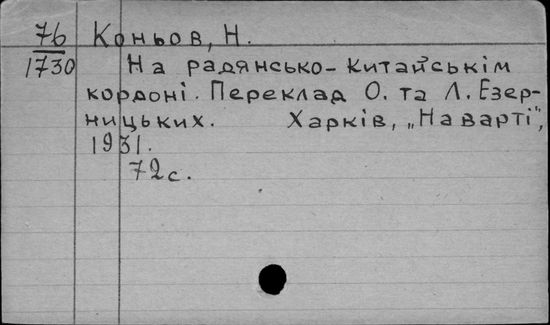 76 Коньов, Н.
1730 На радянсько-китайськім
кордоні. Переклад О. та Л. Езер-
ницьких. Харків, „На варті",
1931.
72 с.